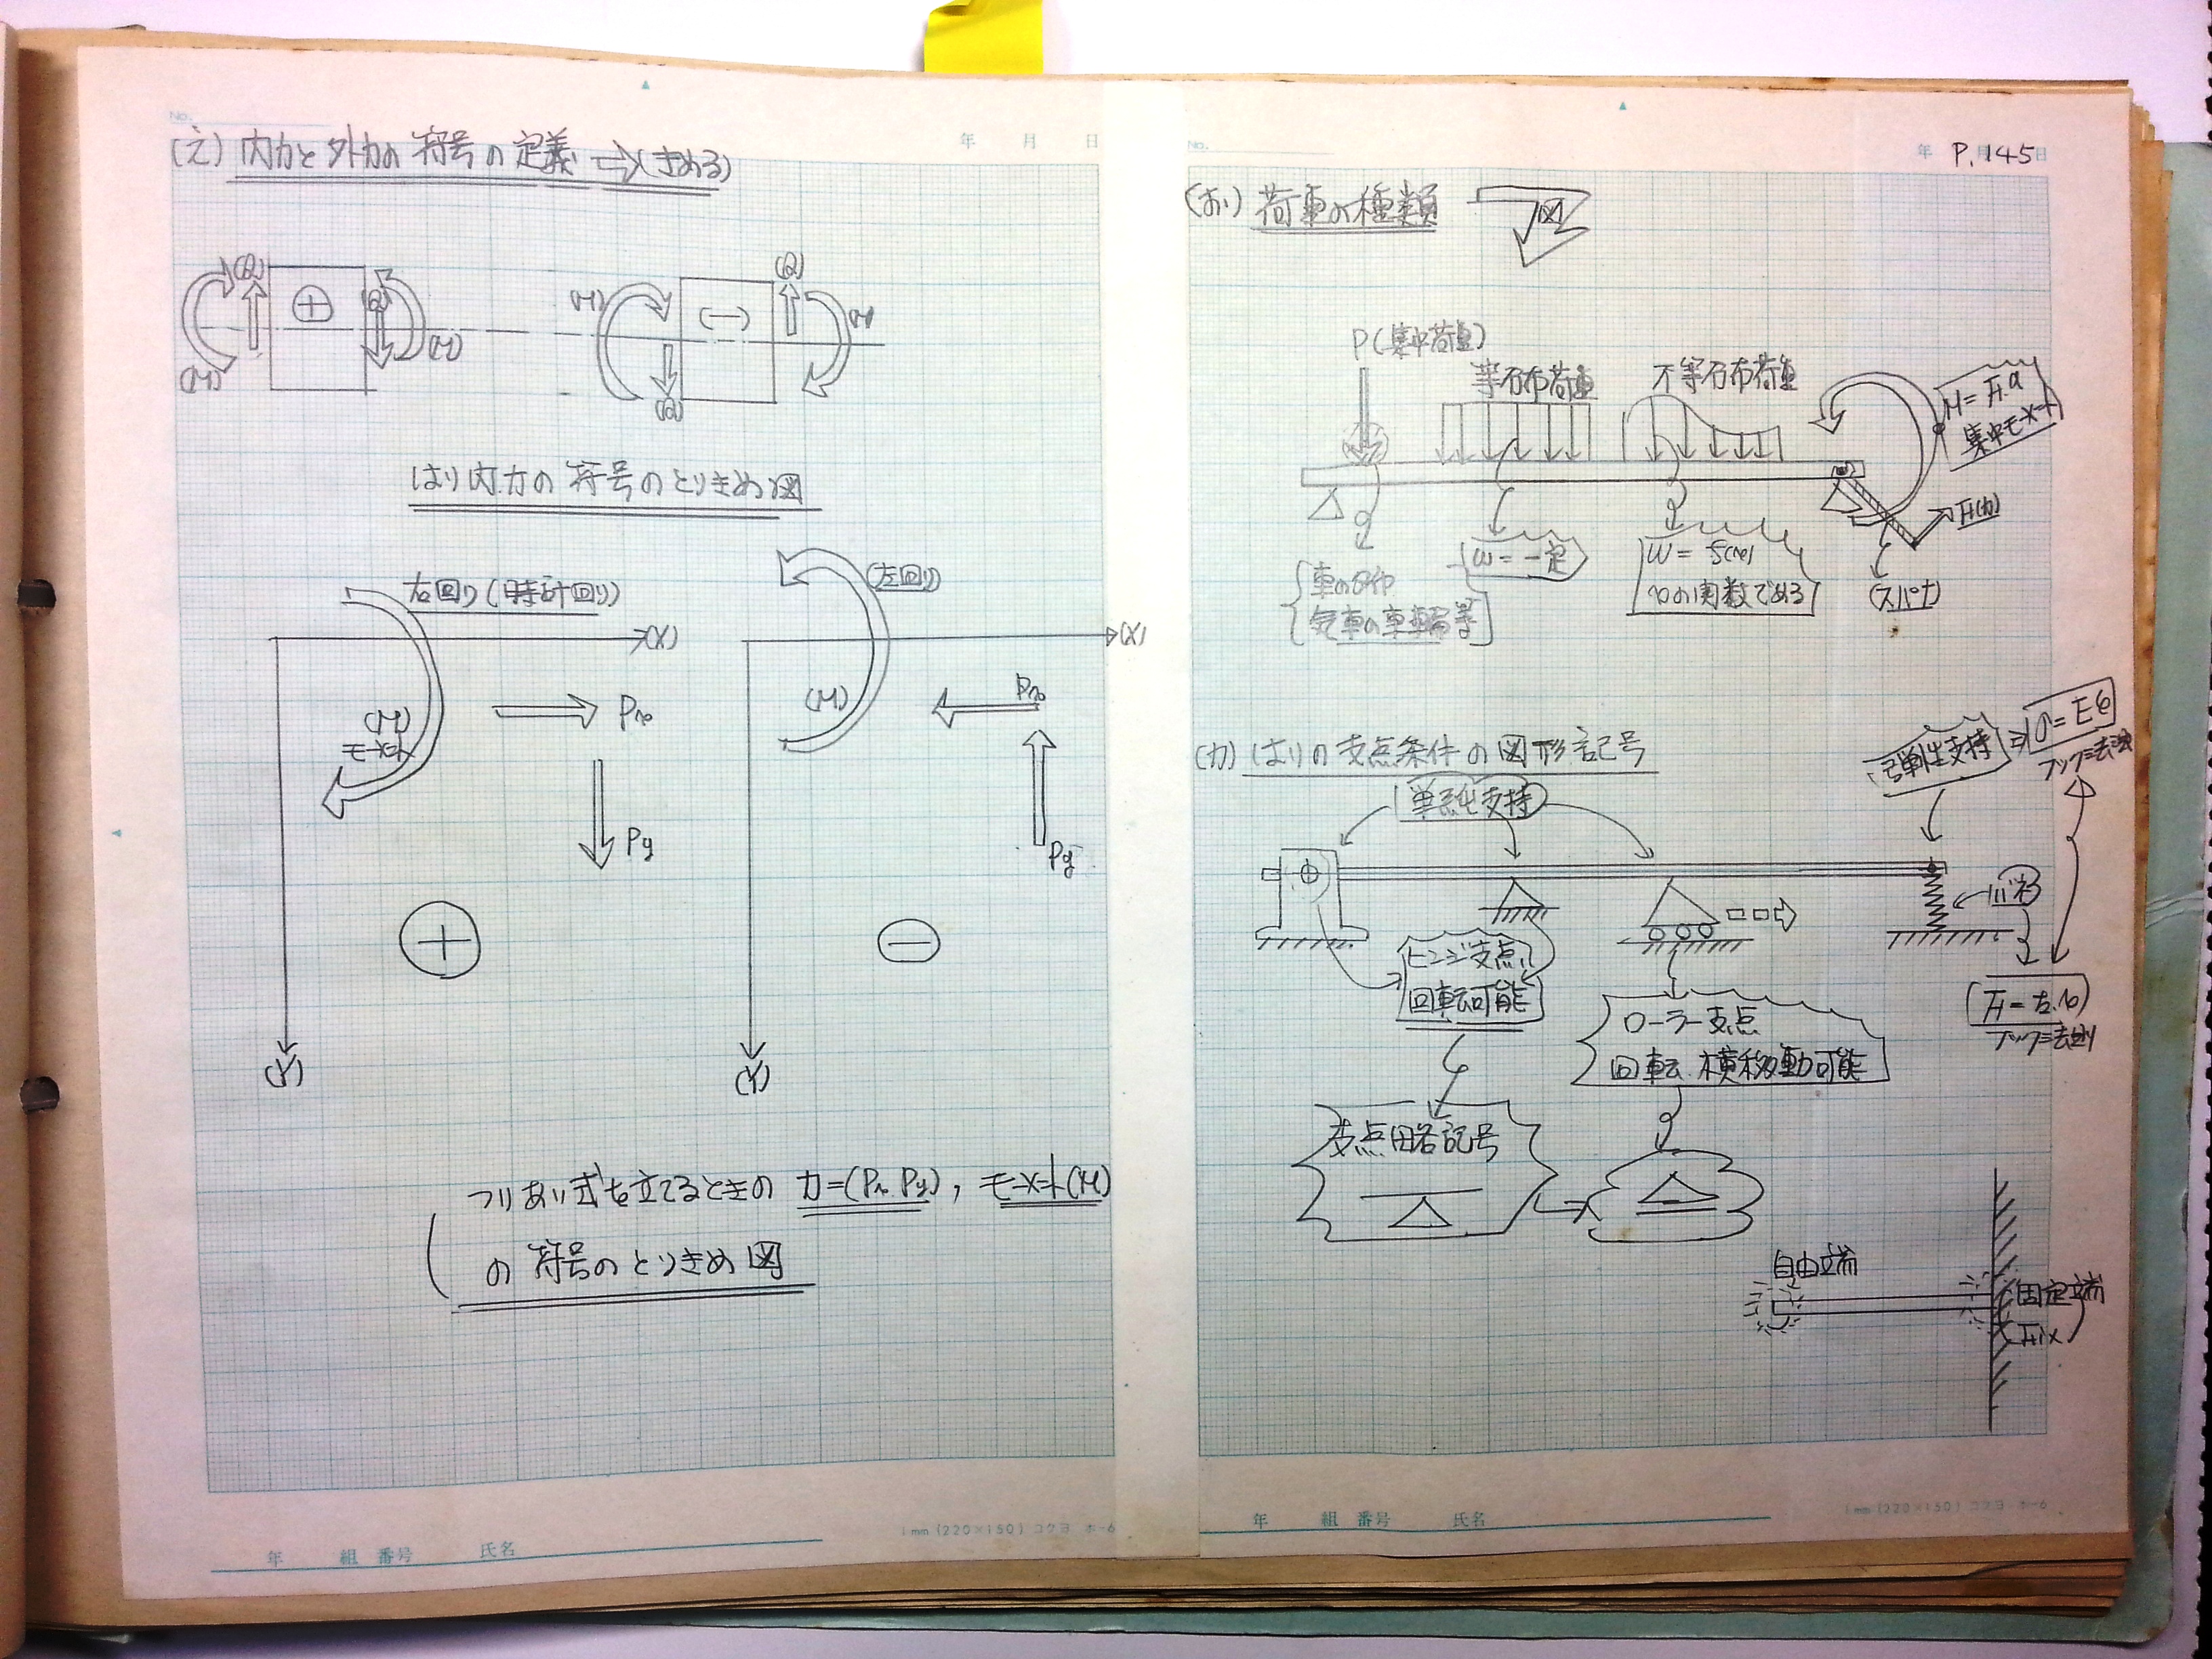 No.
年 月 日
(え) 内力と外力の符号の定義 ⇒ (きめる)
(Q)
(Q)
(M)
(M)
(Q)
(M)
(M)
(Q)
(−)
はり内力の符号のとりきめ図
右回り (時計回り)
(左回り)
(X)
(X)
(M)
モーメント
(M)
Px
Px
Py
Py
(Y)
(Y)
つりあい式を立てるときの 力=(Px Py), モーメント(M)
の 符号のとりきめ図
1mm (220×150) コクヨ ホ-6
年 組 番号 氏名
No.
年 月 日
P.145
(お) 荷重の種類
図
P (集中荷重)
等分布荷重
不等分布荷重
M = F・a
集中モーメント
F(力)
w = 一定
w = f(x)
xの関数である
(スパナ)
車の
汽車の車輪等
(カ) はりの支点条件の図形記号
単純支持
弾性支持
σ = Eε
フックの法則
バネ
ヒンジ支点
回転可能
ローラー支点
回転 横移動可能
フックの法則
支点略記号
自由端
固定端
Fix
1mm (220×150) コクヨ ホ-6
年 組 番号 氏名